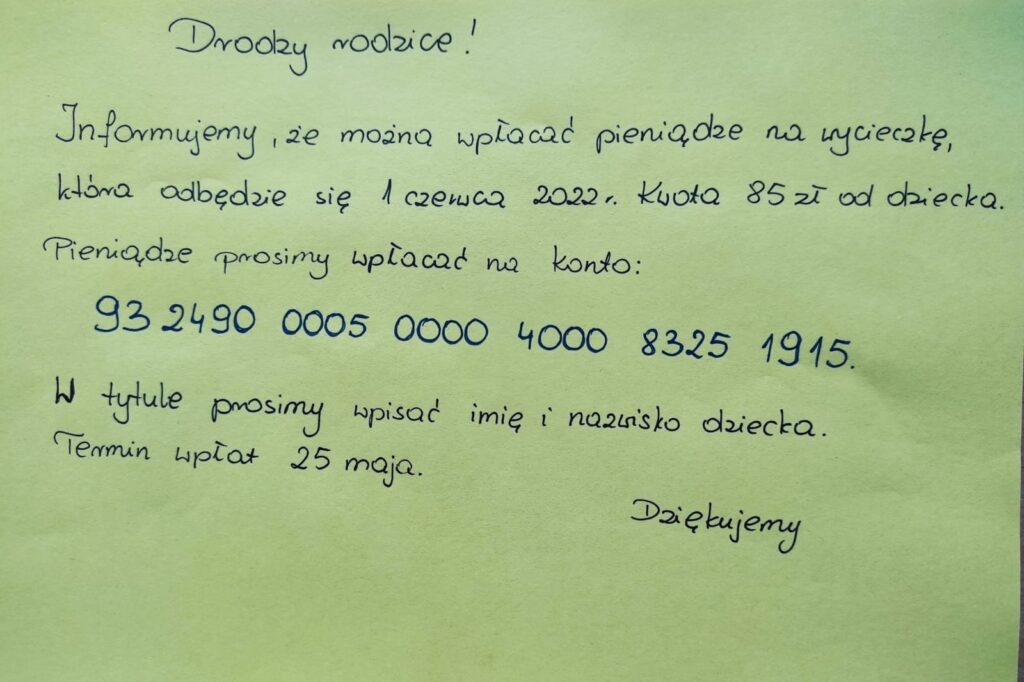 Drodzy rodzice!
Informujemy, że można wpłacać pieniądze na wycieczkę,
która odbędzie się 1 czerwca 2022r. Kwota 85 zł od dziecka.
Pieniądze prosimy wpłacać na konto:
93 2490 0005 0000 4000 8325 1915.
W tytule prosimy wpisać imię i nazwisko dziecka.
Termin wpłat 25 maja.
Dziękujemy